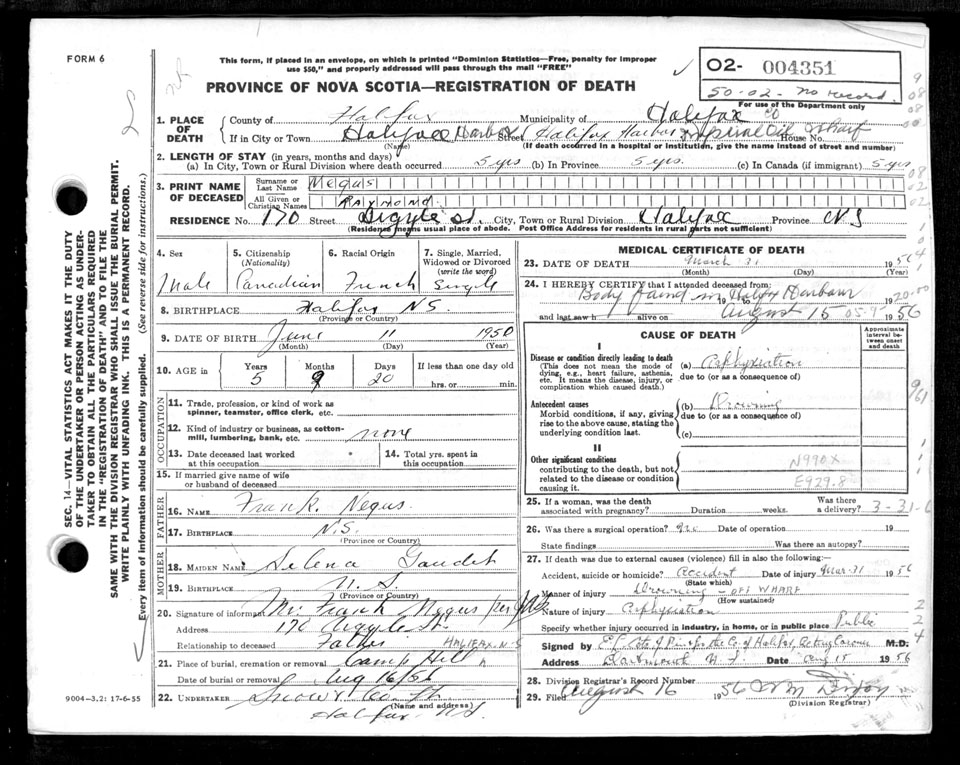 FORM 6
This form, if placed in an envelope, on which is printed "Dominion Statistics—Free, penalty for improper
use $50," and properly addressed will pass through the mail "FREE"
PROVINCE OF NOVA SCOTIA—REGISTRATION OF DEATH
02- 004351
50-02- no record
For use of the Department only
1. PLACE OF DEATH
County of Halifax Municipality of Halifax Co
If in City or Town Halifax Harbor Street (Halifax Harbor Imperial Oil Wharf House No.
(Name) (If death occurred in a hospital or institution, give the name instead of street and number)
2. LENGTH OF STAY (in years, months and days)
(a) In City, Town or Rural Division where death occurred 5 yrs (b) In Province 5 yrs. (c) In Canada (if immigrant) 5 yrs
3. PRINT NAME OF DECEASED
Surname or Last Name Negus
All Given or Christian Names Raymond
RESIDENCE No. 170 Street Argyle St. City, Town or Rural Division Halifax Province NS
(Residence means usual place of abode. Post Office Address for residents in rural parts not sufficient)
4. Sex Male
5. Citizenship (Nationality) Canadian
6. Racial Origin French
7. Single, Married, Widowed or Divorced (write the word) Single
8. BIRTHPLACE Halifax N.S.
(Province or Country)
9. DATE OF BIRTH June 11 1950
(Month) (Day) (Year)
10. AGE IN Years 5 Months 9 Days 20 If less than one day old hrs. or min.
OCCUPATION
11. Trade, profession, or kind of work as spinner, teamster, office clerk, etc.
12. Kind of industry or business, as cotton-mill, lumbering, bank, etc. none
13. Date deceased last worked at this occupation
14. Total yrs. spent in this occupation
15. If married give name of wife or husband of deceased
FATHER
16. NAME Frank Negus.
17. BIRTHPLACE N.S.
(Province or Country)
MOTHER
18. MAIDEN NAME Selena Gaudet
19. BIRTHPLACE N.S
(Province or Country)
20. Signature of informant Mr. Frank Negus per
Address 170 Argyle St.
Relationship to deceased Father HALIFAX. N.S
21. Place of burial, cremation or removal Camp Hill
Date of burial or removal Aug 16/56
22. UNDERTAKER Snow & Co. Lt.
(Name and address)
Halifax NS
MEDICAL CERTIFICATE OF DEATH
23. DATE OF DEATH March 31 1956
(Month) (Day) (Year)
24. I HEREBY CERTIFY that I attended deceased from:
Body found in Halifax Harbour 19 to
and last saw h alive on August 15 1956
CAUSE OF DEATH
Approximate interval between onset and death
I
Disease or condition directly leading to death
(This does not mean the mode of dying, e.g., heart failure, asthenia, etc. It means the disease, injury, or complication which caused death.)
(a) Asphyxiation
due to (or as a consequence of)
Antecedent causes
Morbid conditions, if any, giving rise to the above cause, stating the underlying condition last.
(b) Drowning
due to (or as a consequence of)
(c)
II
Other significant conditions
contributing to the death, but not related to the disease or condition causing it.
N990X
E929.8
25. If a woman, was the death associated with pregnancy? Duration weeks. Was there a delivery? 3-31-6
26. Was there a surgical operation? no Date of operation 19
State findings Was there an autopsy?
27. If death was due to external causes (violence) fill in also the following:—
Accident, suicide or homicide? Accident Date of injury Mar-31 1956
(State which)
Manner of injury Drowning - OFF WHARF
(How sustained)
Nature of injury Asphyxiation
Specify whether injury occurred in industry, in home, or in public place Public
Signed by M.D.
Address Dartmouth N.S. Date Aug 15 1956
28. Division Registrar's Record Number
29. Filed August 16 1956
(Division Registrar)
SEC. 14—VITAL STATISTICS ACT MAKES IT THE DUTY
OF THE UNDERTAKER OR PERSON ACTING AS UNDER-
TAKER TO OBTAIN ALL THE PARTICULARS REQUIRED
IN THE "REGISTRATION OF DEATH" AND TO FILE THE
SAME WITH THE DIVISION REGISTRAR WHO SHALL ISSUE THE BURIAL PERMIT.
WRITE PLAINLY WITH UNFADING INK. THIS IS A PERMANENT RECORD.
Every item of information should be carefully supplied. (See reverse side for instructions.)
9004-3,2: 17-6-55